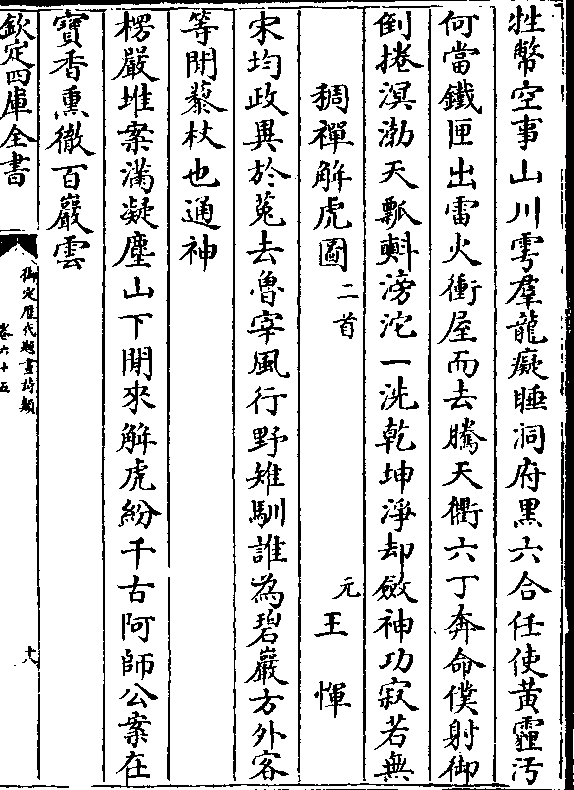 牲幣空事山川雩羣龍癡睡洞府黑六合任使黄霾汚
何當鐵匣出雷火衝屋而去騰天衢六丁奔命僕射御
倒捲溟渤天瓢㪺滂沱一洗乾坤淨却斂神功寂若無
稠禪解虎圖二首 元王惲
宋均政異於菟去魯宰風行野雉馴誰為碧巖方外客
等閒藜杖也通神
楞嚴堆案滿凝塵山下閒來解虎紛千古阿師公案在
寶香熏徹百巖雲
欽定四庫全書
御定歴代題畫詩類
卷六十五
十八